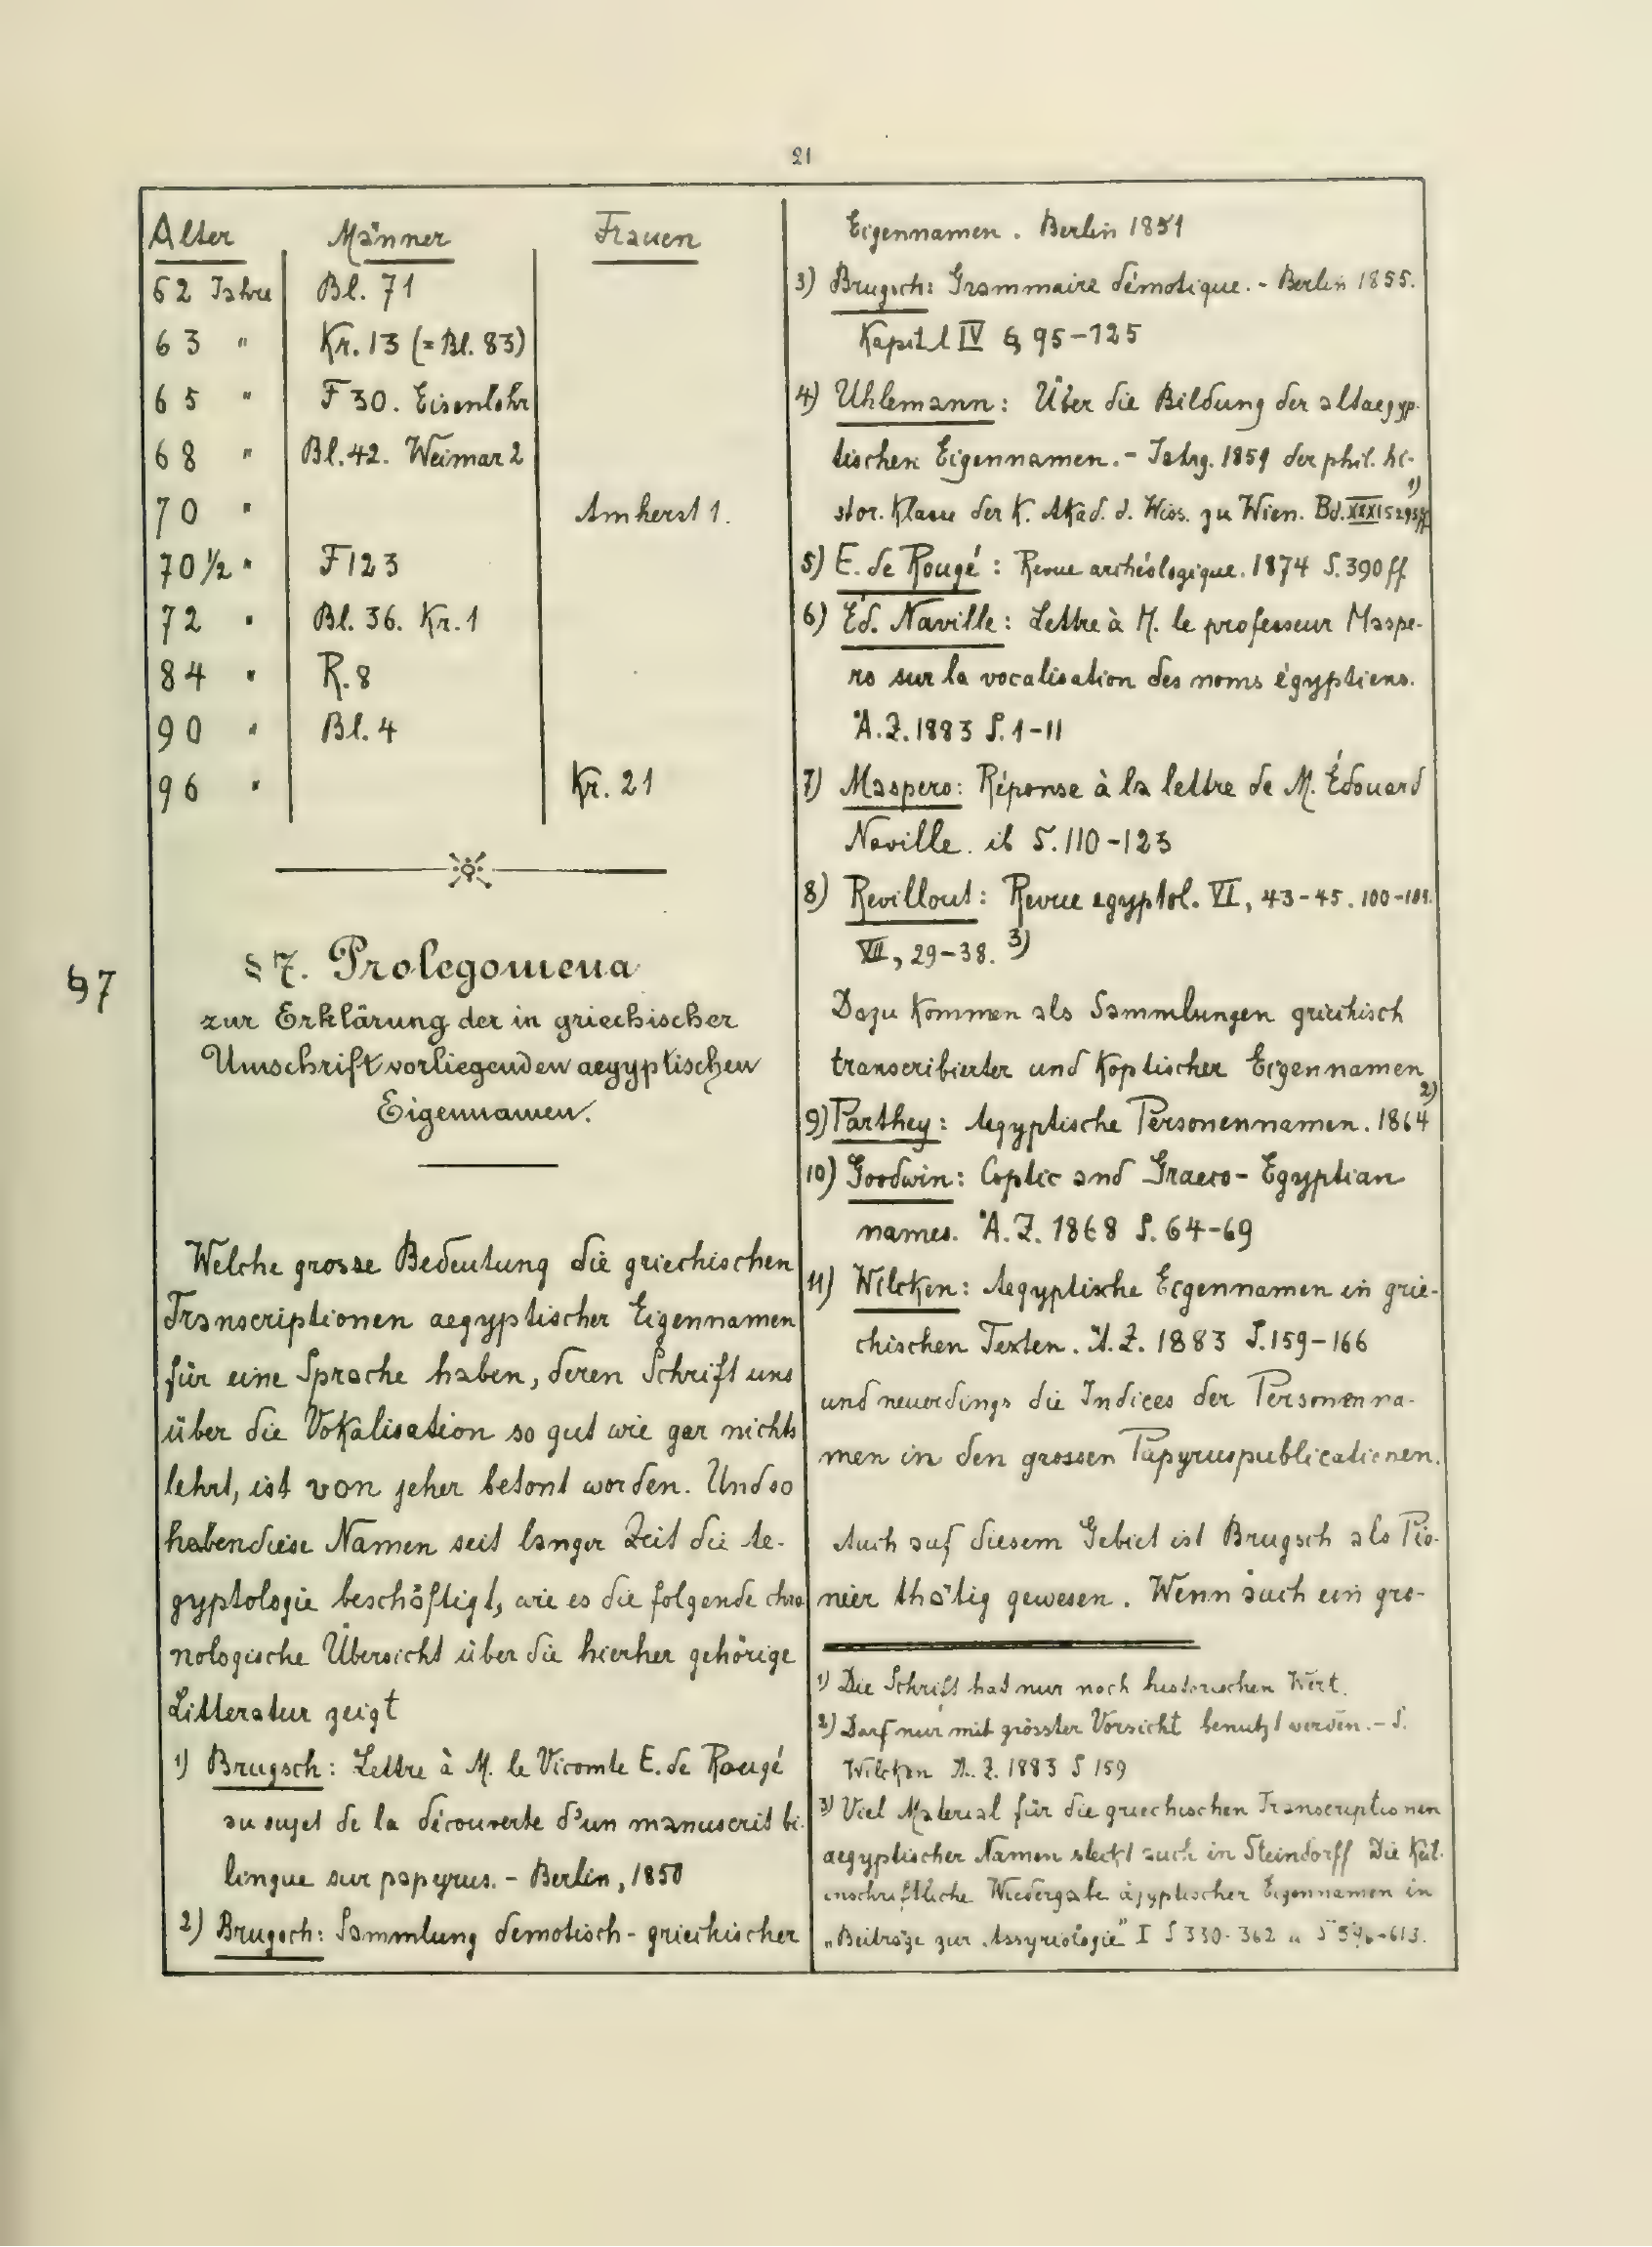 21
Alter Männer Frauen
62 Jahre Bl. 71
63 " Kr. 13 (= Bl. 83)
65 " F 30. Eisenlohr
68 " Bl. 42. Weimar 2
70 " Amherst 1.
70 1/2 " F 123
72 " Bl. 36. Kr. 1
84 " R. 8
90 " Bl. 4
96 " Kr. 21
§ 7
§ 7. Prolegomena
zur Erklärung der in griechischer
Umschrift vorliegenden aegyptischen
Eigennamen.
Welche grosse Bedeutung die griechischen
Transcriptionen aegyptischer Eigennamen
für eine Sprache haben, deren Schrift uns
über die Vokalisation so gut wie gar nichts
lehrt, ist von jeher betont worden. Und so
haben diese Namen seit langer Zeit die Ae-
gyptologie beschäftigt, wie es die folgende chro
nologische Übersicht über die hierher gehörige
Litteratur zeigt
1) Brugsch: Lettre à M. le Vicomte E. de Rougé
au sujet de la découverte d'un manuscrit bi-
lingue sur papyrus. - Berlin, 1850
2) Brugsch: Sammlung demotisch-griechischer
Eigennamen. Berlin 1851
3) Brugsch: Grammaire démotique. - Berlin 1855.
Kapitel IV § 95-125
4) Uhlemann: Über die Bildung der altaegyp-
tischen Eigennamen. - Jahrg. 1859 der phil. hi-
stor. Klasse der K. Akad. d. Wiss. zu Wien. Bd. XXXI S 293ff 1)
5) E. de Rougé: Revue archéologique. 1874 S. 390 ff
6) Ed. Naville: Lettre à M. le professeur Maspe-
ro sur la vocalisation des noms égyptiens.
Ä. Z. 1883 S. 1-11
7) Maspero: Réponse à la lettre de M. Édouard
Naville. ib S. 110-123
8) Revillout: Revue egyptol. VI, 43-45. 100-101.
VII, 29-38. 3)
Dazu kommen als Sammlungen griechisch
transcribierter und koptischer Eigennamen
9) Parthey: Aegyptische Personennamen. 1864 2)
10) Goodwin: Coptic and Graeco-Egyptian
names. Ä. Z. 1868 S. 64-69
11) Wilcken: Aegyptische Eigennamen in grie-
chischen Texten. Ä. Z. 1883 S. 159-166
und neuerdings die Indices der Personenna-
men in den grossen Papyruspublicationen.
Auch auf diesem Gebiet ist Brugsch als Pio-
nier thätig gewesen. Wenn auch ein gro-
1) Die Schrift hat nur noch historischen Wert.
2) Darf nur mit grösster Vorsicht benutzt werden. - S.
Wilcken Ä. Z. 1883 S 159
3) Viel Material für die griechischen Transcriptionen
aegyptischer Namen steckt auch in Steindorff Die Keil-
inschriftliche Wiedergabe ägyptischer Eigennamen in
„Beiträge zur Assyriologie" I S 330-362 u S 596-613.